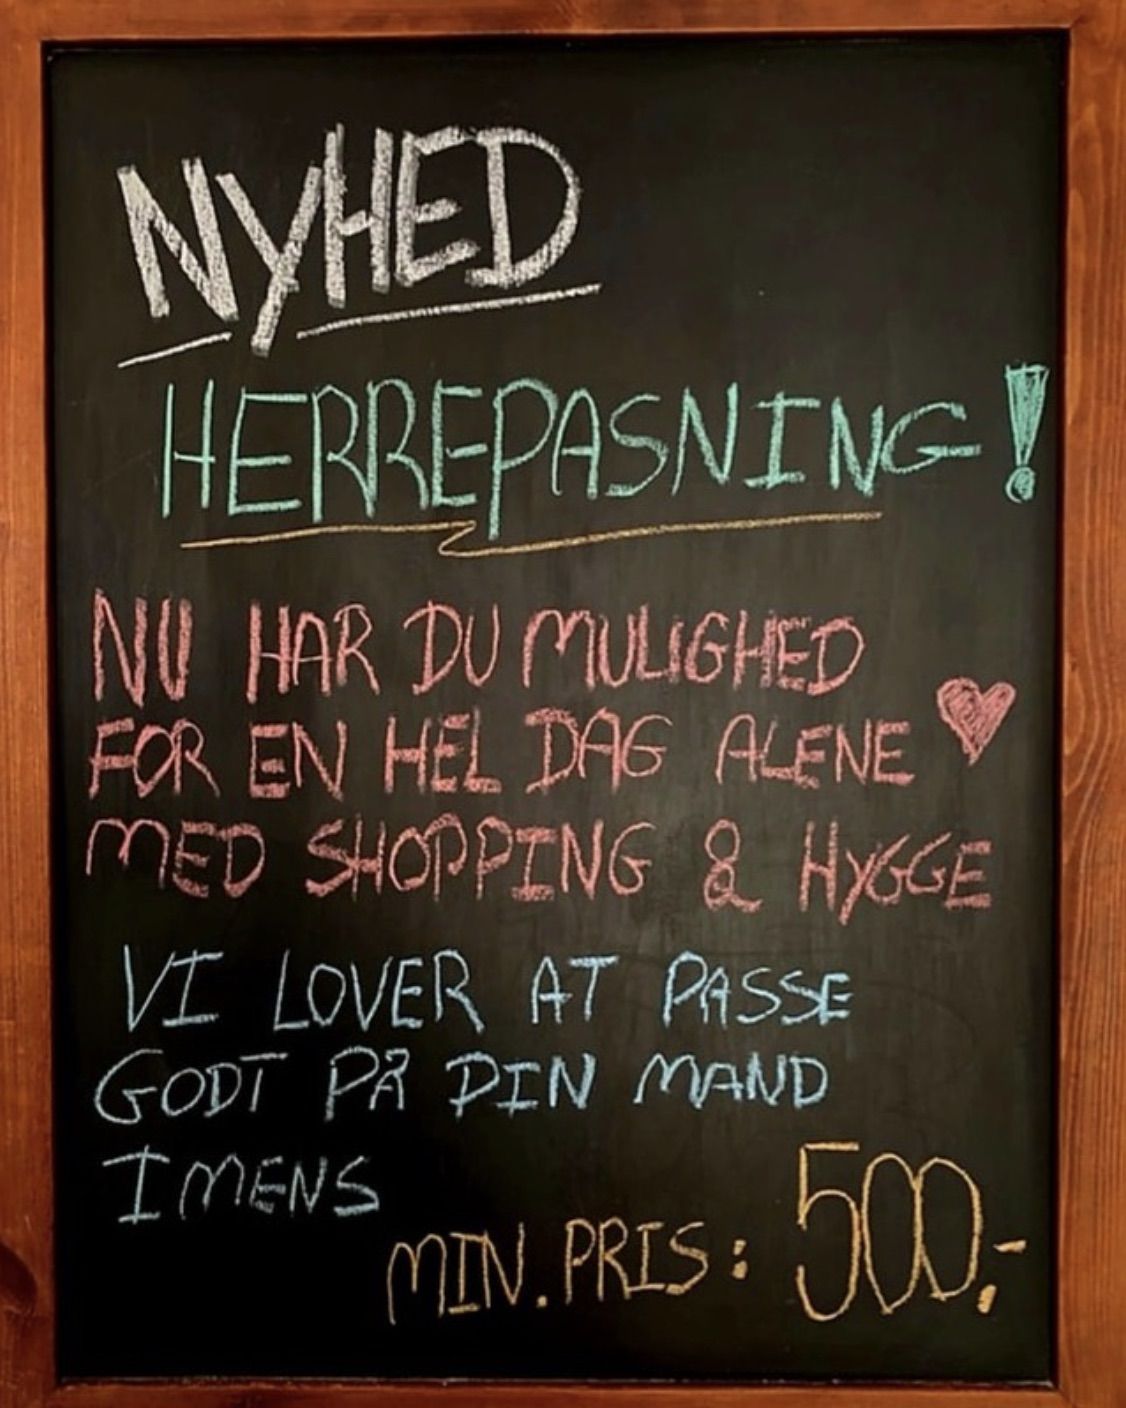 NYHED
HERREPASNING!
NU HAR DU MULIGHED
FOR EN HEL DAG ALENE ♥
MED SHOPPING & HYGGE
VI LOVER AT PASSE
GODT PÅ DIN MAND
IMENS
MIN. PRIS: 500,-